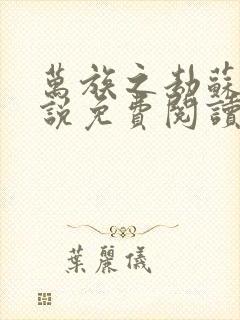 萬族之劫蘇
說免費閱讀
葉麗儀